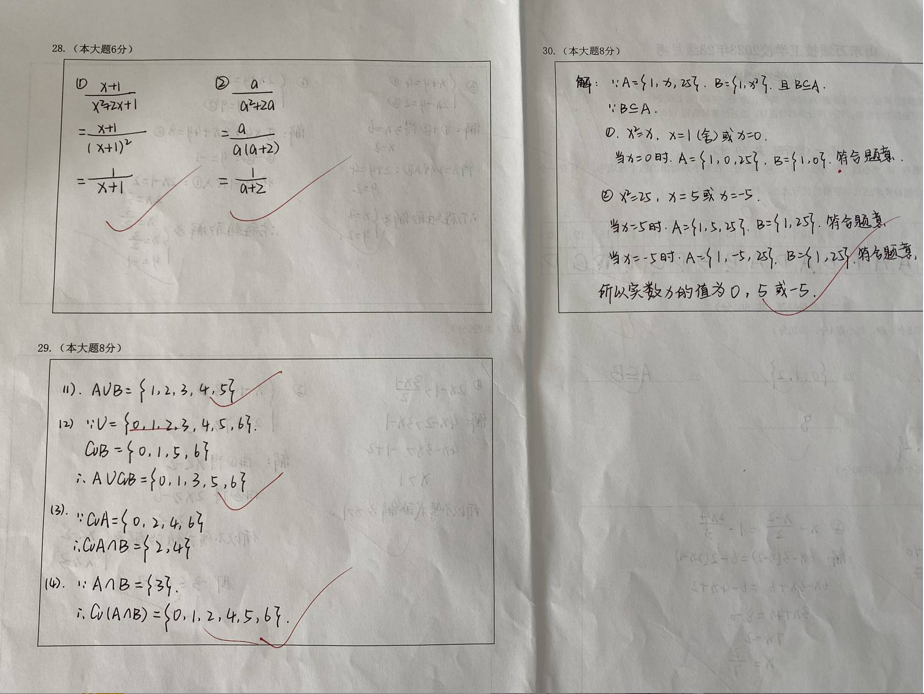 28. （本大题6分）
① (x+1)/(x²+2x+1)
= (x+1)/(x+1)²
= 1/(x+1)
② a/(a²+2a)
= a/(a(a+2))
= 1/(a+2)
29. （本大题8分）
(1). A∪B={1,2,3,4,5}
(2) ∵U={0,1,2,3,4,5,6}.
CuB={0,1,5,6}
∴A∪CuB={0,1,3,5,6}
(3). ∵CuA={0,2,4,6}
∴CuA∩B={2,4}
(4). ∵A∩B={3}.
∴Cu(A∩B)={0,1,2,4,5,6}.
30. （本大题8分）
解: ∵A={1,x,25}. B={1,x²}. 且B⊆A.
∵B⊆A.
①. x²=x, x=1(舍)或x=0.
当x=0时. A={1,0,25}. B={1,0}. 符合题意.
② x²=25, x=5或x=-5.
当x=5时. A={1,5,25}. B={1,25}. 符合题意
当x=-5时. A={1,-5,25}. B={1,25}. 符合题意.
所以实数x的值为0, 5或-5.